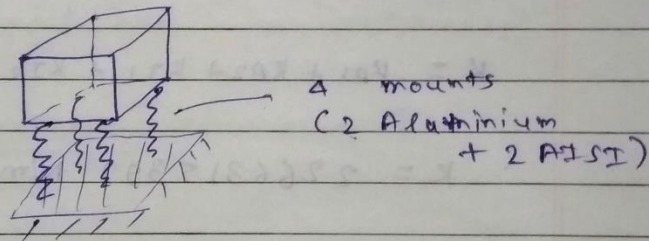 4 mounts
(2 Aluminium
+ 2 AISI)